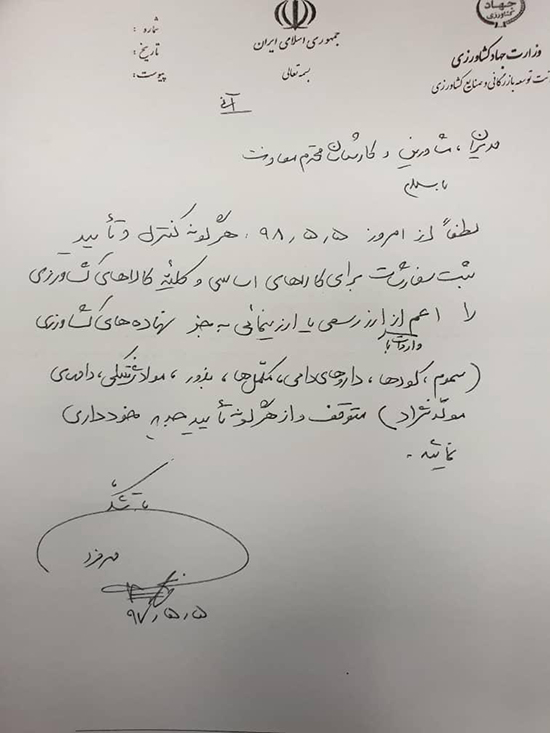 جهاد کشاورزی
وزارت جهاد کشاورزی
توسعه بازرگانی و صنایع کشاورزی
جمهوری اسلامی ایران
بسمه تعالی
شماره :
تاریخ :
پیوست :
آنی
مدیران، مشاورین و کارشناسان محترم معاونت
با سلام
لطفاً از امروز ۹۸٫۵٫۵، هرگونه کنترل و تأیید
ثبت سفارشات برای کالاهای اساسی و کلیه کالاهای کشاورزی
را اعم از واردات با ارز رسمی یا ارز نیمائی به جز نهاده‌های کشاورزی
(سموم، کودها، داروهای دامی، مکمل‌ها، بذور، مواد ژنتیکی، دامهای
مولد نژاد) متوقف و از هرگونه تأیید جدید خودداری
نمائید.
با تشکر
مهرفرد
۹۷٫۵٫۵